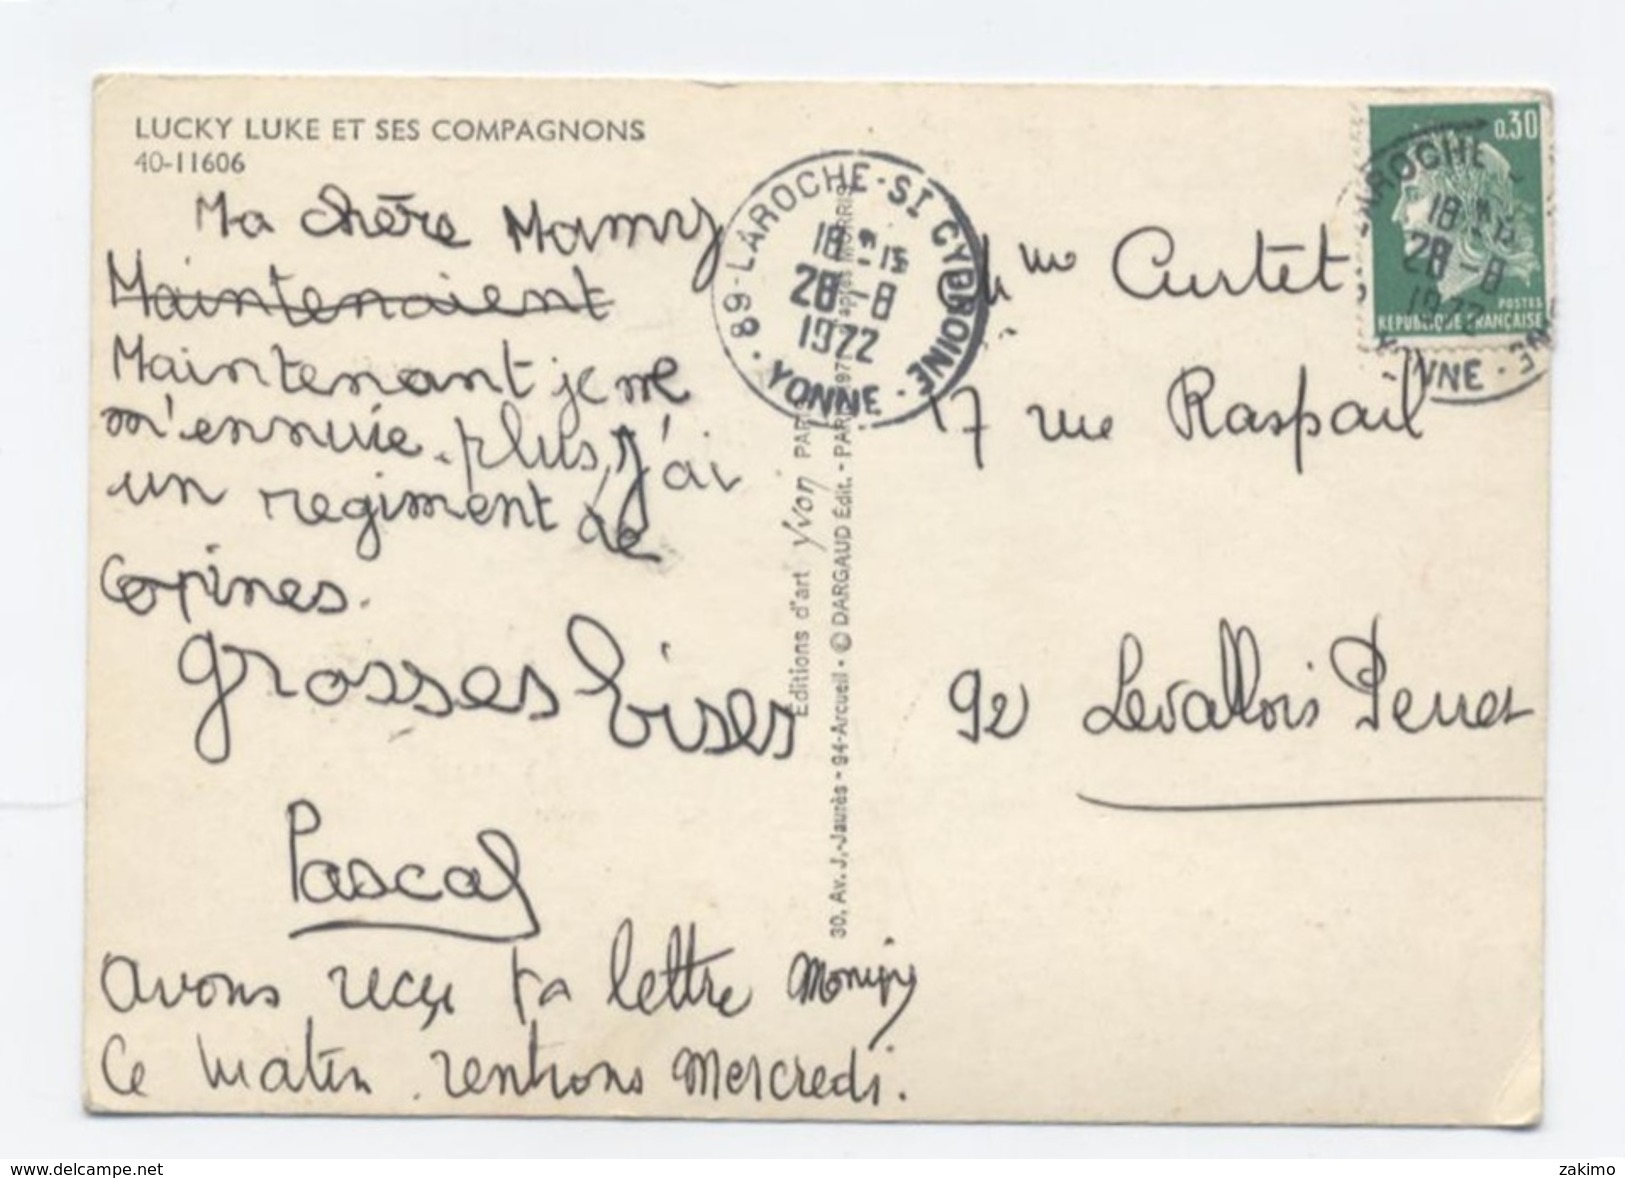 LUCKY LUKE ET SES COMPAGNONS
40-11606
Ma chère Mamy
Maintenaient
Maintenant je me
m'ennuie plus, j'ai
un regiment de
copines.
grosses bises
Pascal
avons reçu ta lettre
ce matin. rentrons Mercredi.
89-LAROCHE-ST CYDROINE-
18H-15
28-8
1972
YONNE
Editions d'art Yvon PAR
30, Av. J.-Jaurès - 94-Arcueil - © DARGAUD Edit. - PAR 197 après MORRIS
0,30
POSTES
REPUBLIQUE FRANÇAISE
LAROCHE -
18H-15
28-8
1972
YONNE -
Mme Curtet
17 rue Raspail
92 Levallois Perret
www.delcampe.net
zakimo